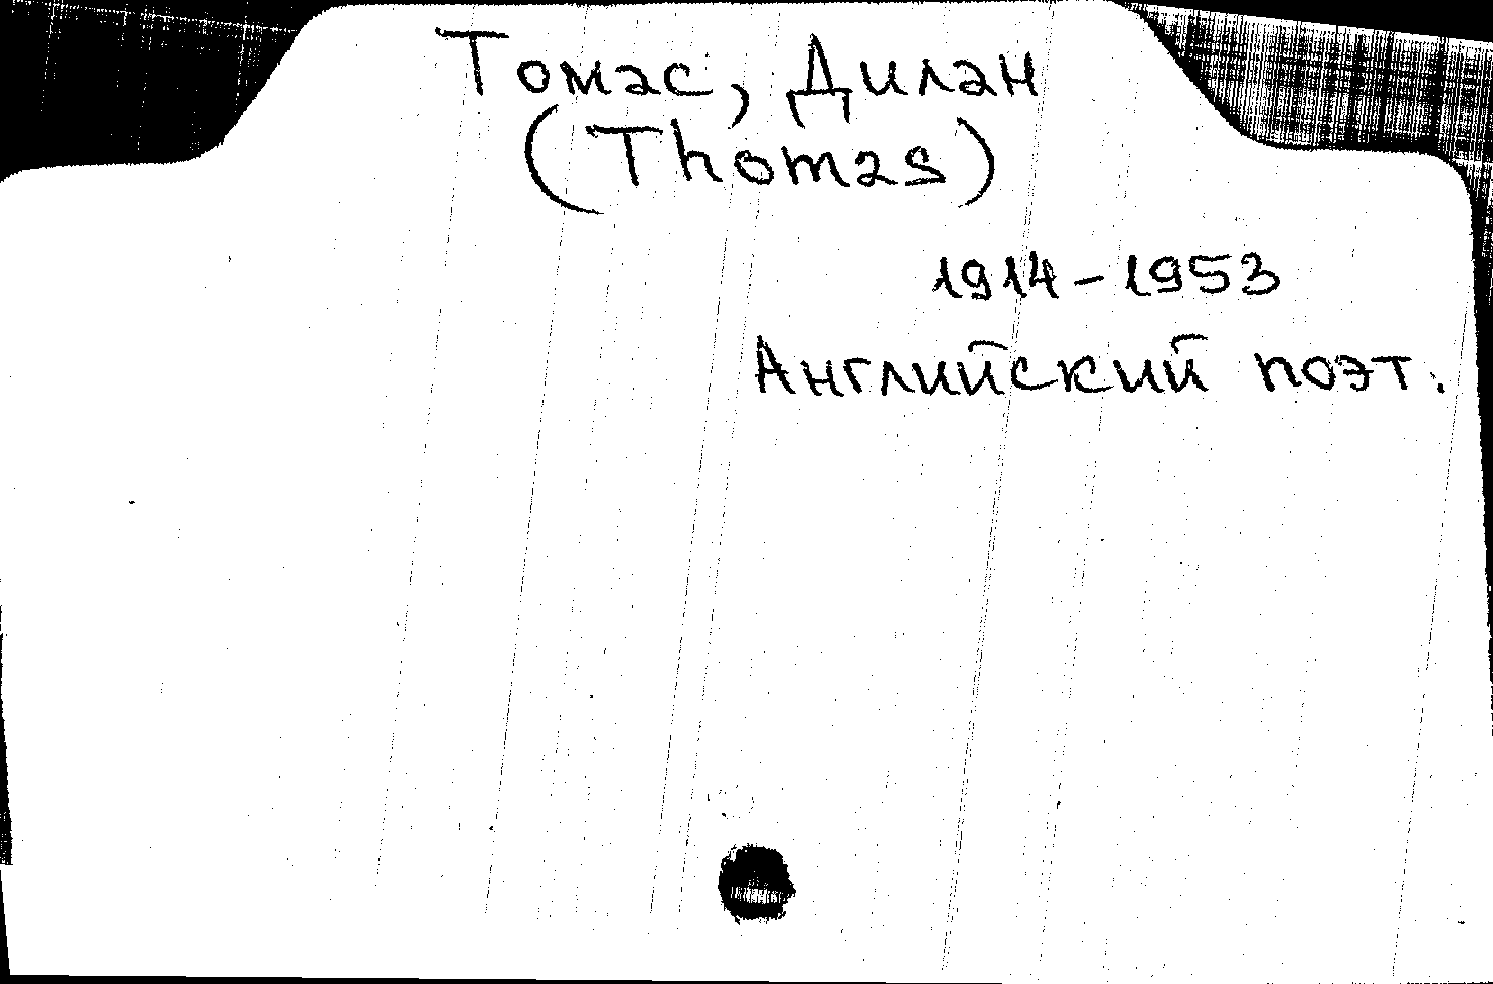 Томас, Дилан
(Thomas)
1914-1953
Английский поэт.